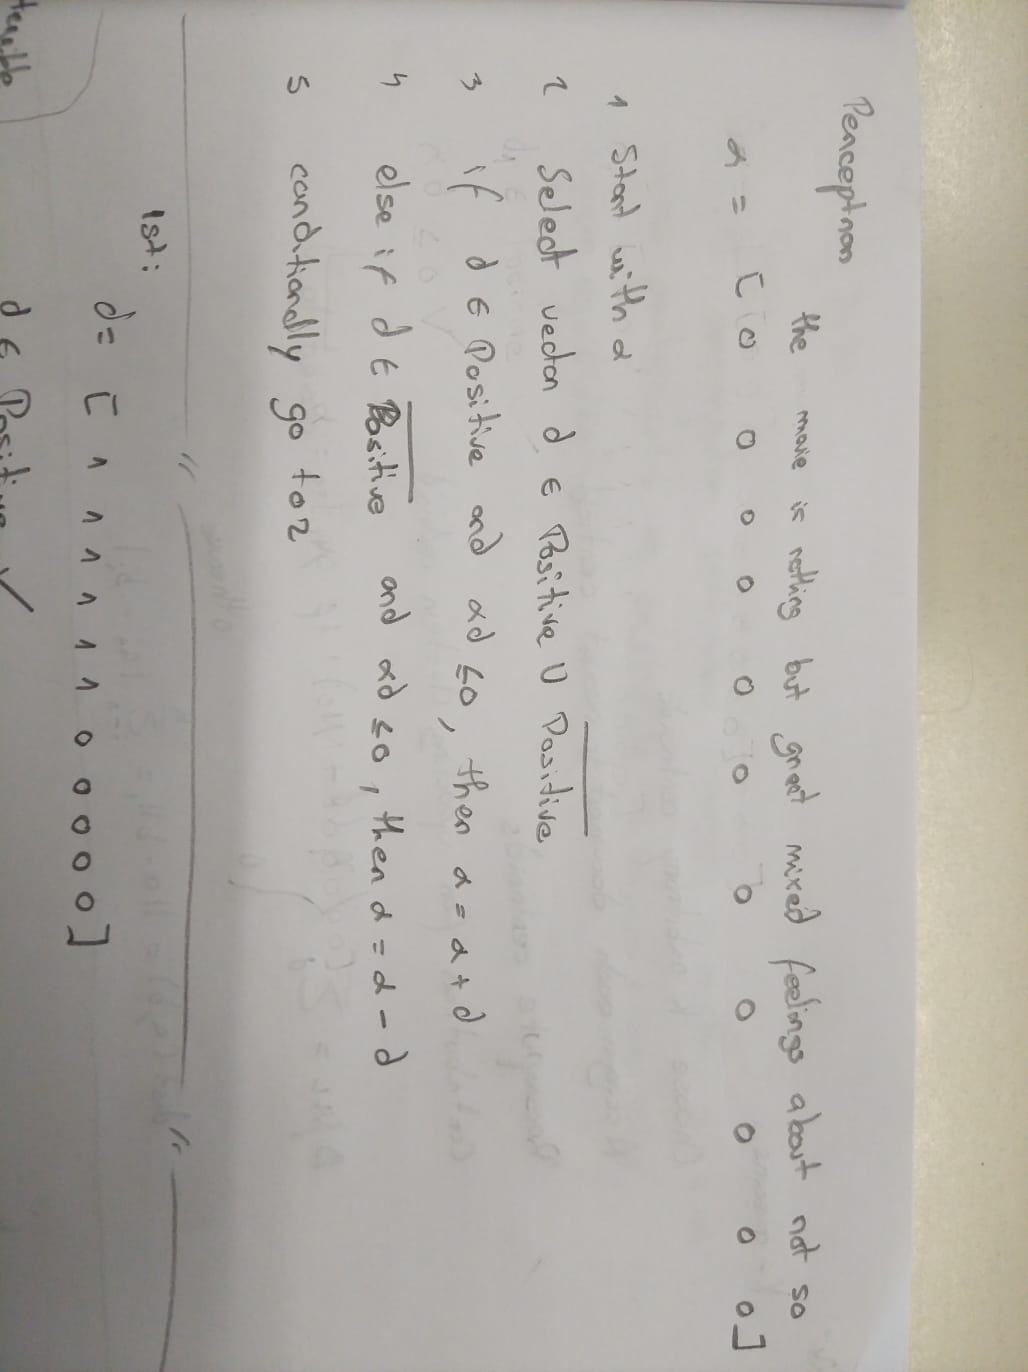 Perceptron
the movie is nothing but great mixed feelings about not so
α = [ 0 0 0 0 0 0 0 0 0 0 0 ]
1 Start with α
2 Select vector d ∈ Positive ∪ P̅o̅s̅i̅t̅i̅v̅e̅
3 if d ∈ Positive and αd ≤ 0, then α = α + d
4 else if d ∈ P̅o̅s̅i̅t̅i̅v̅e̅ and αd ≤ 0, then α = α - d
5 conditionally go to 2
1st:
d = [ 1 1 1 1 1 1 0 0 0 0 0 ]
d ∈ Positive ✓